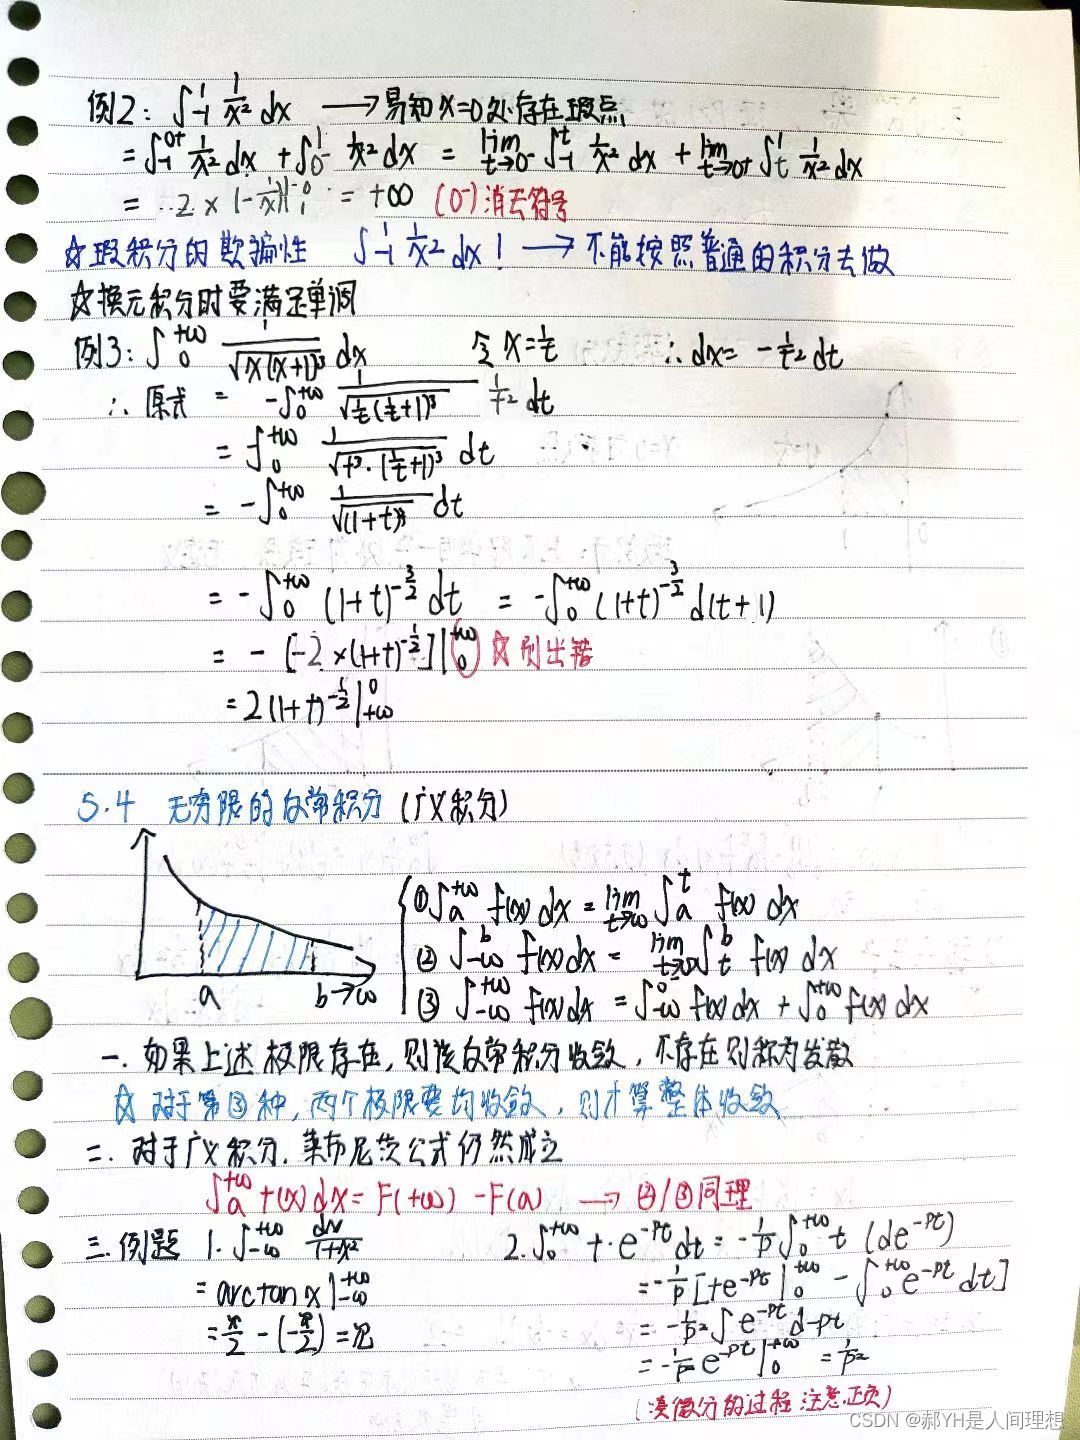 例2: ∫₋₁¹ 1/x² dx ⟶ 易知x=0处存在瑕点
= ∫₋₁^0+ 1/x² dx + ∫₀-¹ 1/x² dx = lim t→0⁻ ∫₋₁^t 1/x² dx + lim t→0⁺ ∫_t^1 1/x² dx
= 2×(-1/x)| = +∞ (0⁻)消去符号
☆瑕积分的欺骗性 ∫₋₁¹ 1/x² dx! ⟶ 不能按照普通的积分去做
☆换元积分时要满足单调
例3: ∫₀^+∞ 1/√x(x+1)³ dx 令x=1/t ∴dx= -1/t² dt
∴ 原式 = -∫₀^+∞ 1/√(1/t(1/t+1)³) 1/t² dt
= -∫₀^+∞ 1/√(t³·(1/t+1)³) dt
= -∫₀^+∞ 1/√(1+t)³ dt
= -∫₀^+∞ (1+t)^-3/2 dt = -∫₀^+∞ (1+t)^-3/2 d(t+1)
= -[-2×(1+t)^-1/2]|₀^+∞ ☆别出错
= 2(1+t)^-1/2 |_+∞^0
5.4 无穷限的反常积分(广义积分)
①∫_a^+∞ f(x)dx = lim t→∞ ∫_a^t f(x)dx
②∫_-∞^b f(x)dx = lim t→∞ ∫_t^b f(x)dx
③∫_-∞^+∞ f(x)dx = ∫_-∞^0 f(x)dx + ∫₀^+∞ f(x)dx
a b→∞
一.如果上述极限存在,则该反常积分收敛,不存在则称为发散
☆对于第③种,两个极限要均收敛,则才算整体收敛
二.对于广义积分.莱布尼茨公式仍然成立
∫_a^+∞ f(x)dx = F(+∞) - F(a) ⟶ ②/③同理
三.例题 1.∫_-∞^+∞ dx/1+x²
= arctan x|_-∞^+∞
= π/2 - (-π/2) = π
2.∫₀^+∞ t·e^-pt dt = -1/p ∫₀^+∞ t (de^-pt)
= -1/p [te^-pt |₀^+∞ - ∫₀^+∞ e^-pt dt]
= -1/p² ∫ e^-pt d-pt
= -1/p² e^-pt |₀^+∞ = 1/p²
(凑微分的过程注意正负)
CSDN @郝YH是人间理想